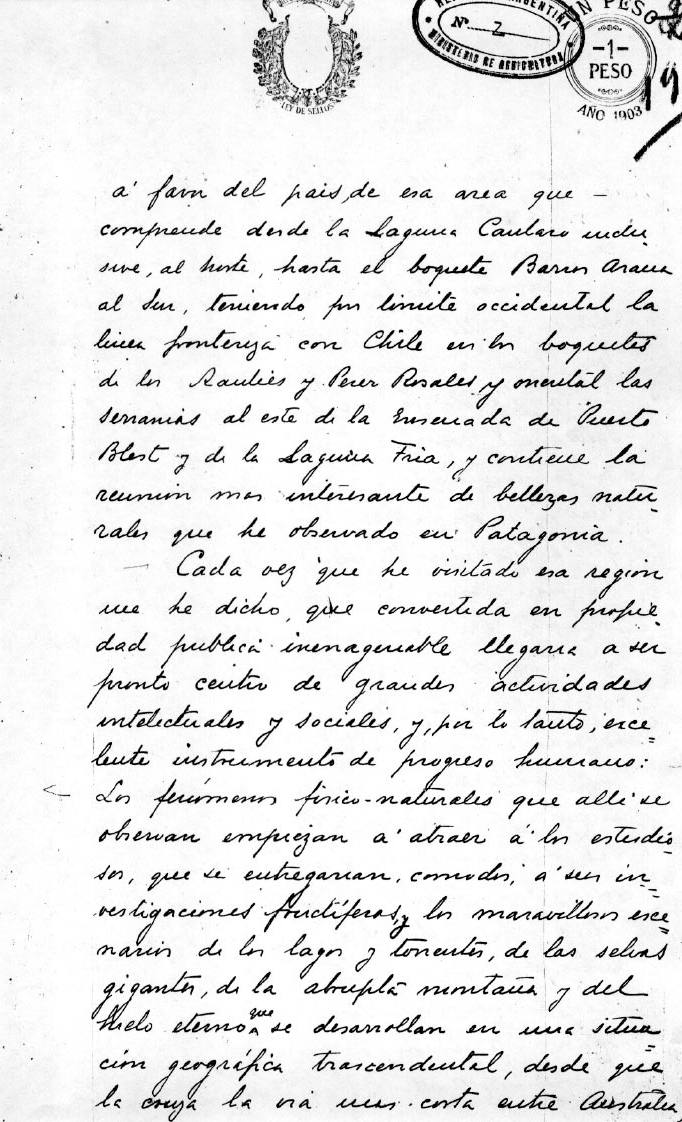 Nº 2
MINISTERIO DE AGRICULTURA
UN PESO
-1-
PESO
AÑO 1903
LEY DE SELLOS
á favor del pais, de esa area que —
comprende desde la Laguna Cantaro inclu-
sive, al norte, hasta el boquete Barros Arana
al Sur, teniendo por limite occidental la
linea fronteriza con Chile en los boquetes
de los Raulies y Perez Rosales, y oriental las
serranias al este de la Ensenada de Puerto
Blest y de la Laguna Fria, y contiene la
reunion mas interesante de bellezas natu-
rales que he observado en Patagonia.
— Cada vez que he visitado esa region
me he dicho, que convertida en propie-
dad publica inenagenable llegaria a ser
pronto centro de grandes actividades
intelectuales y sociales, y, por lo tanto, exce=
lente instrumento de progreso humano:
Los fenómenos fisico-naturales que alli se
observan empiezan á atraer á los estudio-
sos, que se entregarian, comodos, á sus in=
vestigaciones fructíferas, y los maravillosos esce=
narios de los lagos y torrentes, de las selvas
gigantes, de la abrupta montaña y del
hielo eterno que se desarrollan en una situa=
ción geográfica trascendental, desde que
la cruza la via mas corta entre Australia,